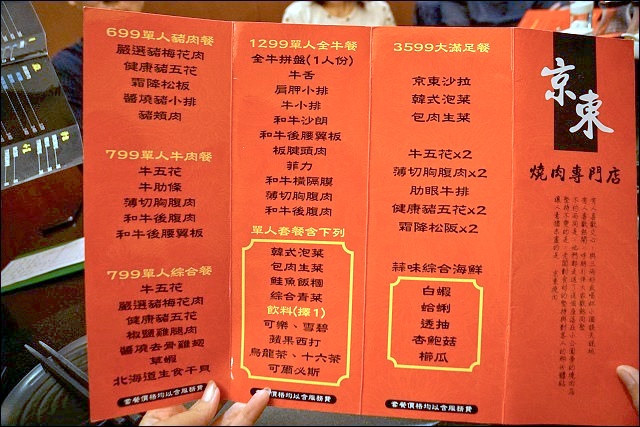 699單人豬肉餐
嚴選豬梅花肉
健康豬五花
霜降松板
醬燒豬小排
豬頰肉
799單人牛肉餐
牛五花
牛肋條
薄切胸腹肉
和牛後腹肉
和牛後腰翼板
799單人綜合餐
牛五花
嚴選豬梅花肉
健康豬五花
椒鹽雞腿肉
醬燒去骨雞翅
草蝦
北海道生食干貝
套餐價格均以含服務費
1299單人全牛餐
全牛拼盤(1人份)
牛舌
肩胛小排
牛小排
和牛沙朗
和牛後腰翼板
板腱頭肉
菲力
和牛橫隔膜
薄切胸腹肉
和牛後腹肉
單人套餐含下列
韓式泡菜
包肉生菜
鮭魚飯糰
綜合青菜
飲料(擇1)
可樂、雪碧
蘋果西打
烏龍茶、十六茶
可爾必斯
套餐價格均以含服務費
3599大滿足餐
京東沙拉
韓式泡菜
包肉生菜
牛五花x2
薄切胸腹肉x2
肋眼牛排
健康豬五花x2
霜降松阪x2
蒜味綜合海鮮
白蝦
蛤蜊
透抽
杏鮑菇
櫛瓜
套餐價格均以含服務費
京東
燒肉專門店